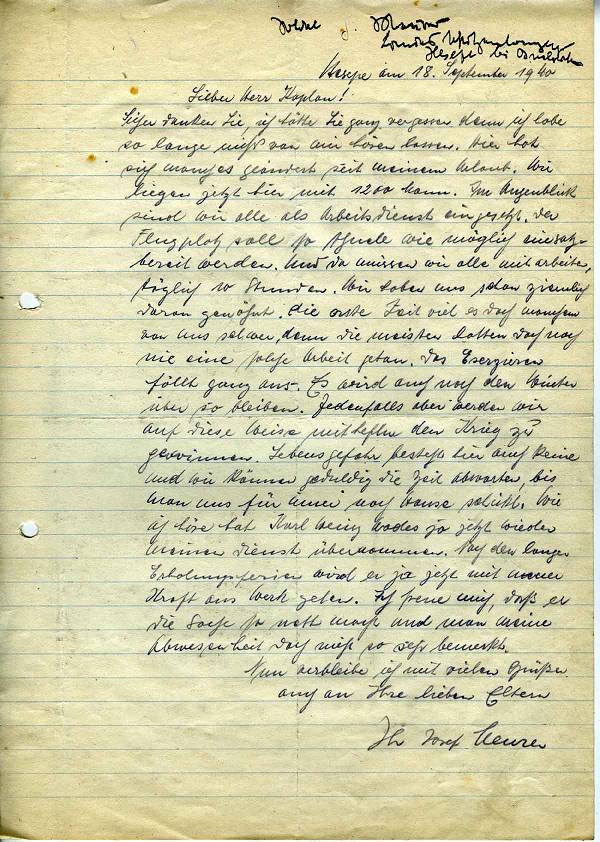 Hesepe am 18. September 1940
Lieber Herr Kaplan!
Sicher denken Sie, ich hätte Sie ganz vergessen denn ich habe
so lange nichts von mir hören lassen. Hier hat
sich manches geändert seit meinem Urlaub. Wir
liegen jetzt hier mit 1200 Mann. Im Augenblick
sind wir alle als Arbeitsdienst eingesetzt. Der
Flugplatz soll so schnell wie möglich einsatz-
bereit werden. Und da müssen wir alle mit arbeiten,
täglich 10 Stunden. Wir haben uns schon ziemlich
daran gewöhnt. Die erste Zeit viel es doch manchem
von uns schwer, denn die meisten hatten doch noch
nie eine solche Arbeit getan. Das Exerzieren
fällt ganz aus. Es wird auch noch den Winter
über so bleiben. Jedenfalls aber werden wir
auf diese Weise mithelfen den Krieg zu
gewinnen. Lebensgefahr besteht hier auch keine
und wir können geduldig die Zeit abwarten, bis
man uns für immer nach Hause schickt. Wie
ich höre hat Karl ja jetzt wieder
meinen Dienst übernommen. Nach den langen
Erholungsferien wird er ja jetzt mit neuer
Kraft ans Werk gehen. Ich freue mich, daß er
die Sache so nett macht und man meine
Abwesenheit doch nicht so sehr bemerkt.
Nun verbleibe ich mit vielen Grüßen
auch an Ihre lieben Eltern
Ihr Josef